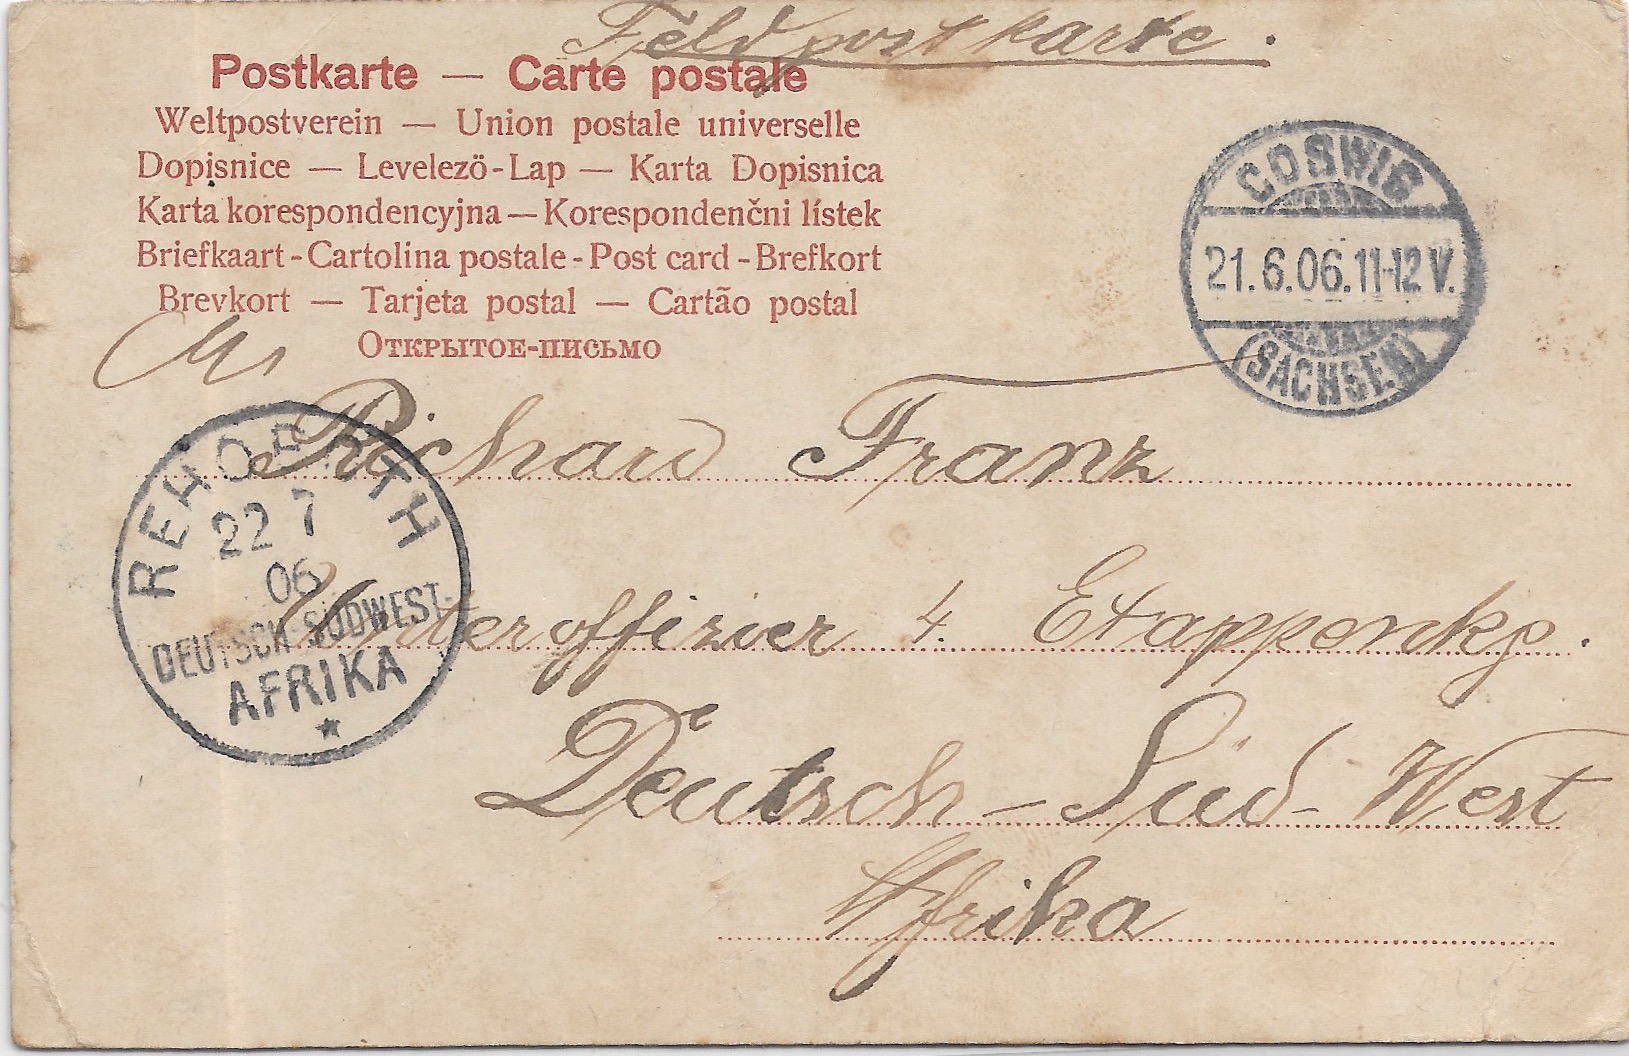 Feldpostkarte.
Postkarte — Carte postale
Weltpostverein — Union postale universelle
Dopisnice — Levelezö-Lap — Karta Dopisnica
Karta korespondencyjna — Korespondenčni lístek
Briefkaart - Cartolina postale - Post card - Brefkort
Brevkort — Tarjeta postal — Cartão postal
Открытое-письмо
COSWIG
21.6.06.11-12 V.
(SACHSEN)
Richard Franz
REHOBOTH
22 7
06
DEUTSCH-SÜDWEST-
AFRIKA
Unteroffizier 4. Etappenkp.
Deutsch-Süd-West
Afrika